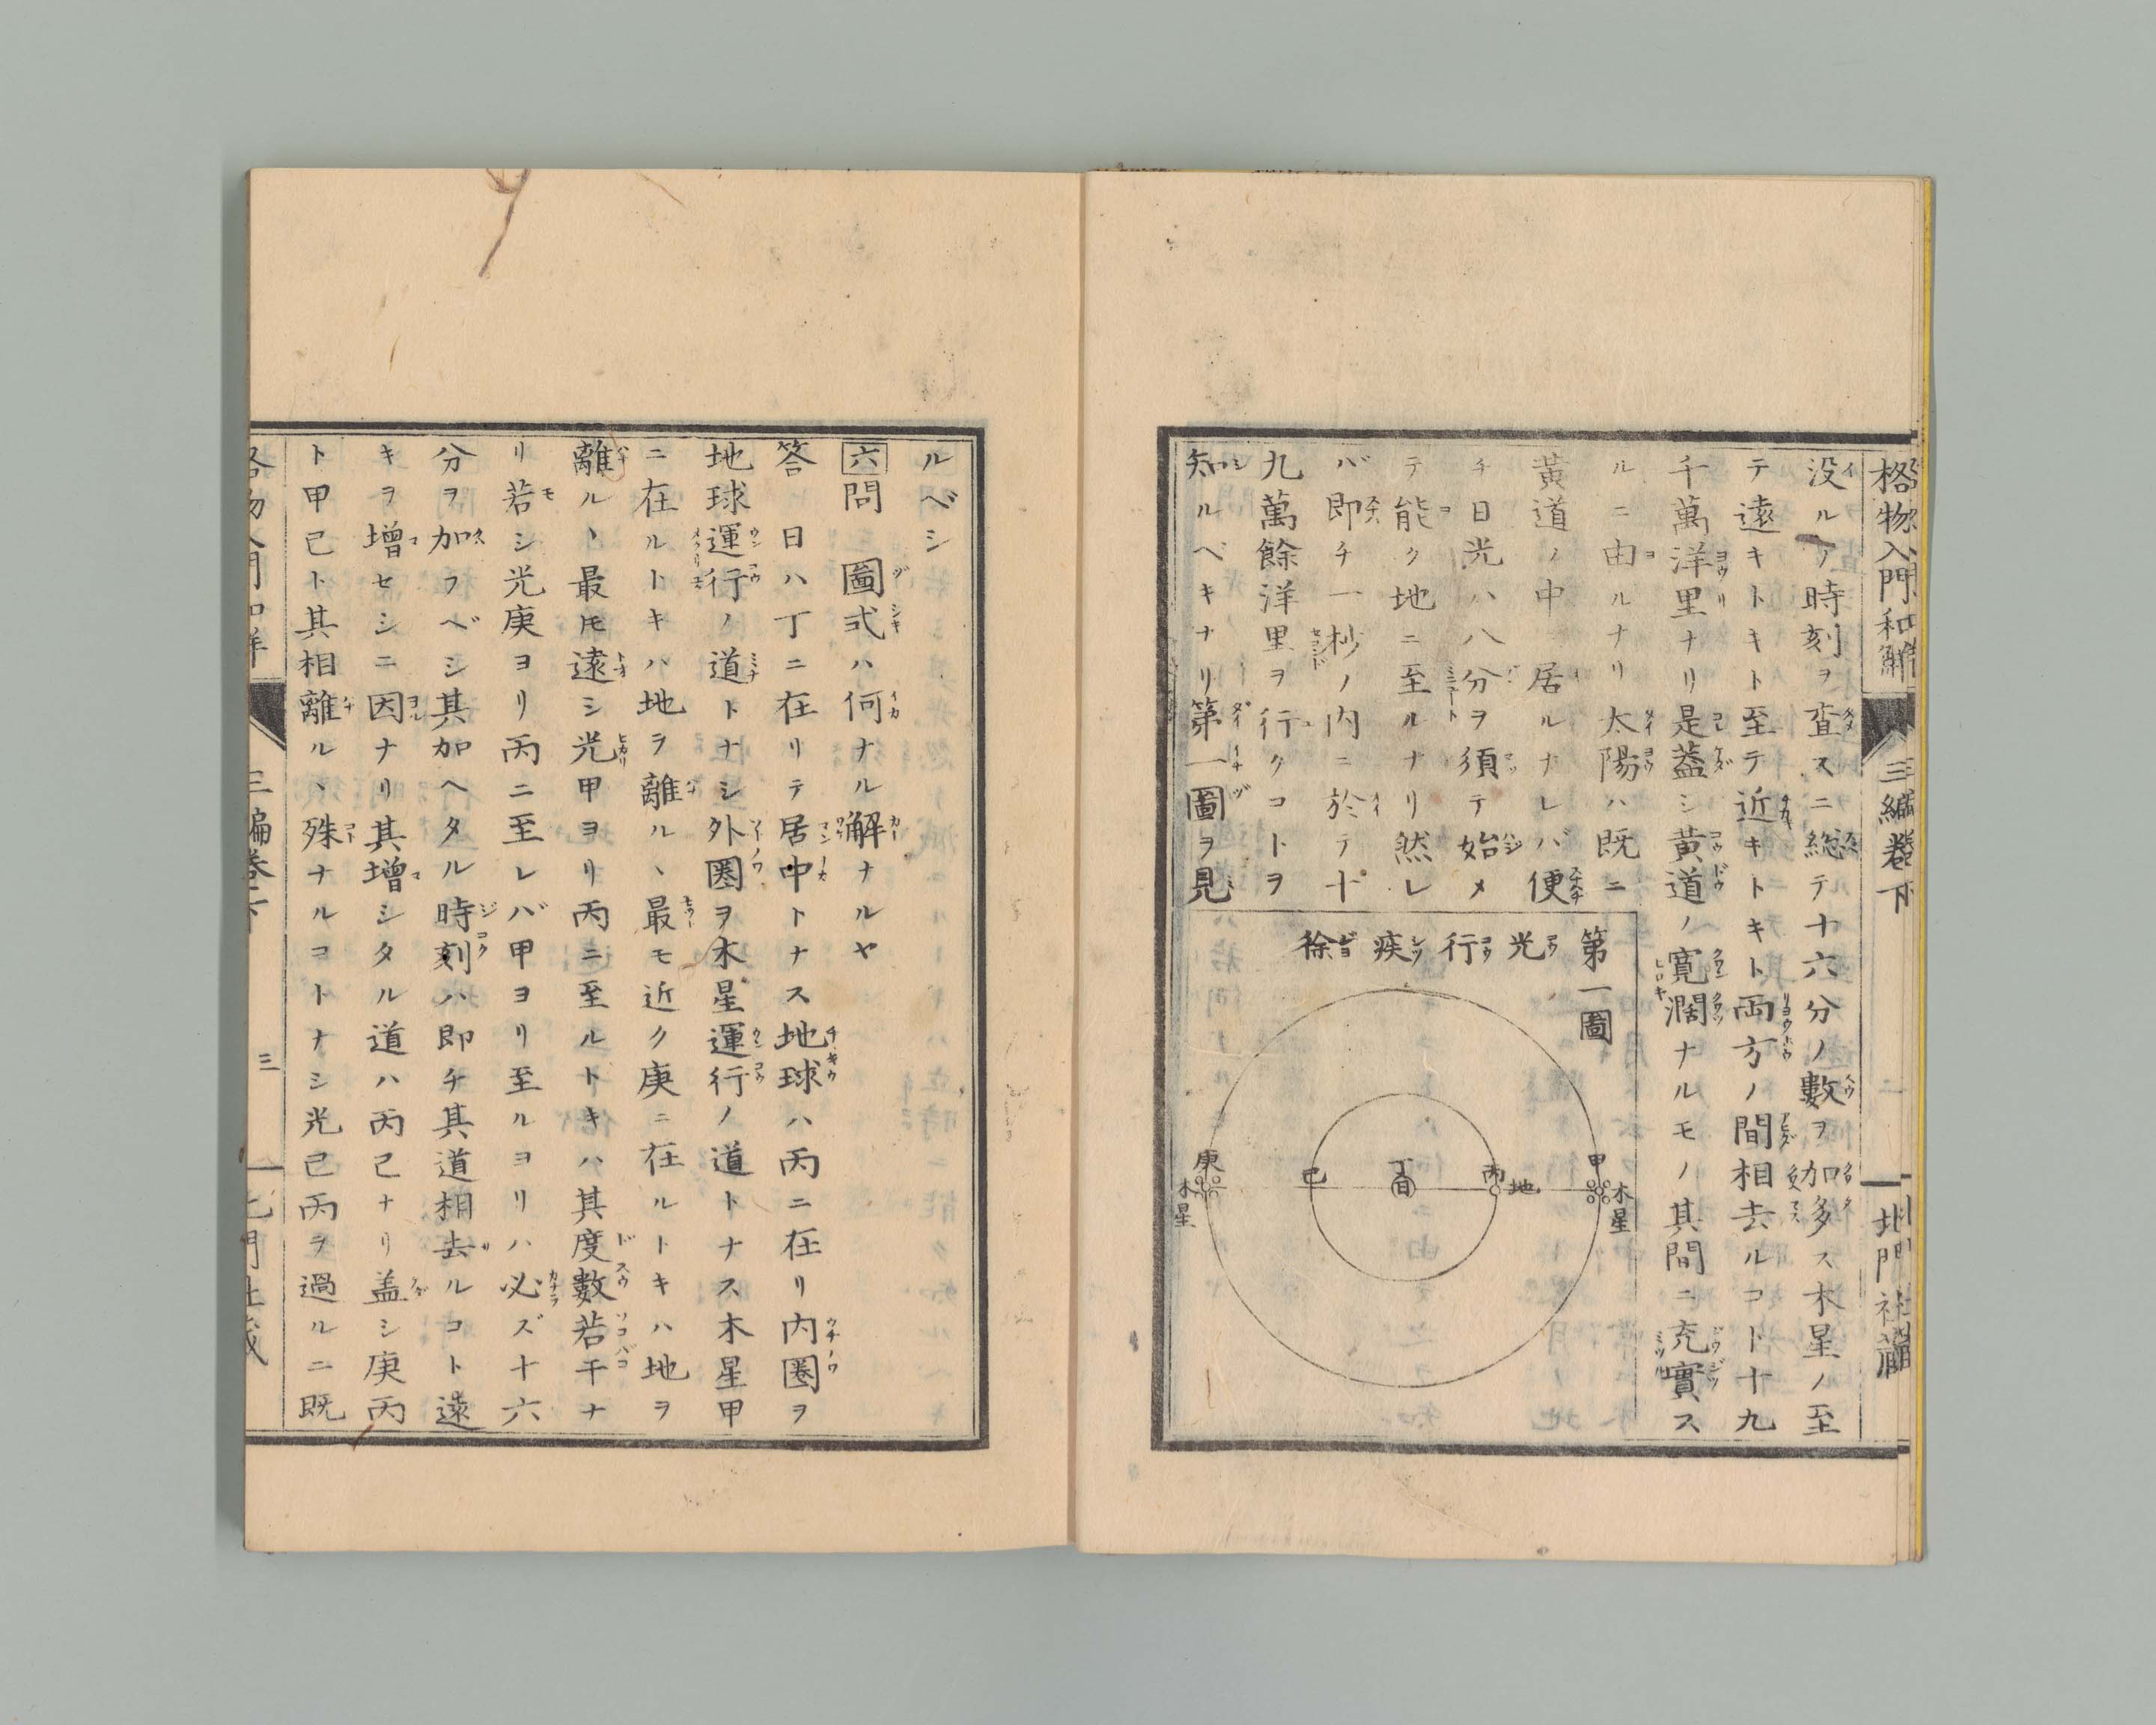 格物入門和解
三編卷下
北門社藏
没ルノ時刻ヲ査スニ総テ十六分ノ數ヲ加多ス木星ノ至
テ遠キトキト至テ近キトキト両方ノ間相去ルコト十九
千萬洋里ナリ是蓋シ黄道ノ寛濶ナルモノ其間ニ充實ス
ルニ由ルナリ太陽ハ既ニ
黄道ノ中ニ居ルナレバ便
チ日光ハ八分ヲ須テ始メ
テ能ク地ニ至ルナリ然レ
バ即チ一杪ノ内ニ於テ十
九萬餘洋里ヲ行クコトヲ
知ルベキナリ第一圖ヲ見
第一圖
光行疾徐
甲
木星
丙
地
丁
日
已
庚
木星
ルベシ
六問　圖式ハ何ナル解ナルヤ
答　日ハ丁ニ在リテ居中トナス地球ハ丙ニ在リ内圏ヲ
地球運行ノ道トナシ外圏ヲ木星運行ノ道トナス木星甲
ニ在ルトキハ地ヲ離ルヽ最モ近ク庚ニ在ルトキハ地ヲ
離ルヽ最モ遠シ光甲ヨリ丙ニ至ルトキハ其度數若干ナ
リ若シ光庚ヨリ丙ニ至レバ甲ヨリ至ルヨリハ必ズ十六
分ヲ加フベシ其加ヘタル時刻ハ即チ其道相去ルコト遠
キヲ増セシニ因ナリ其増シタル道ハ丙己ナリ盖シ庚丙
ト甲己ト其相離ルヽ殊ナルコトナシ光己丙ヲ過ルニ既
三編卷下
三